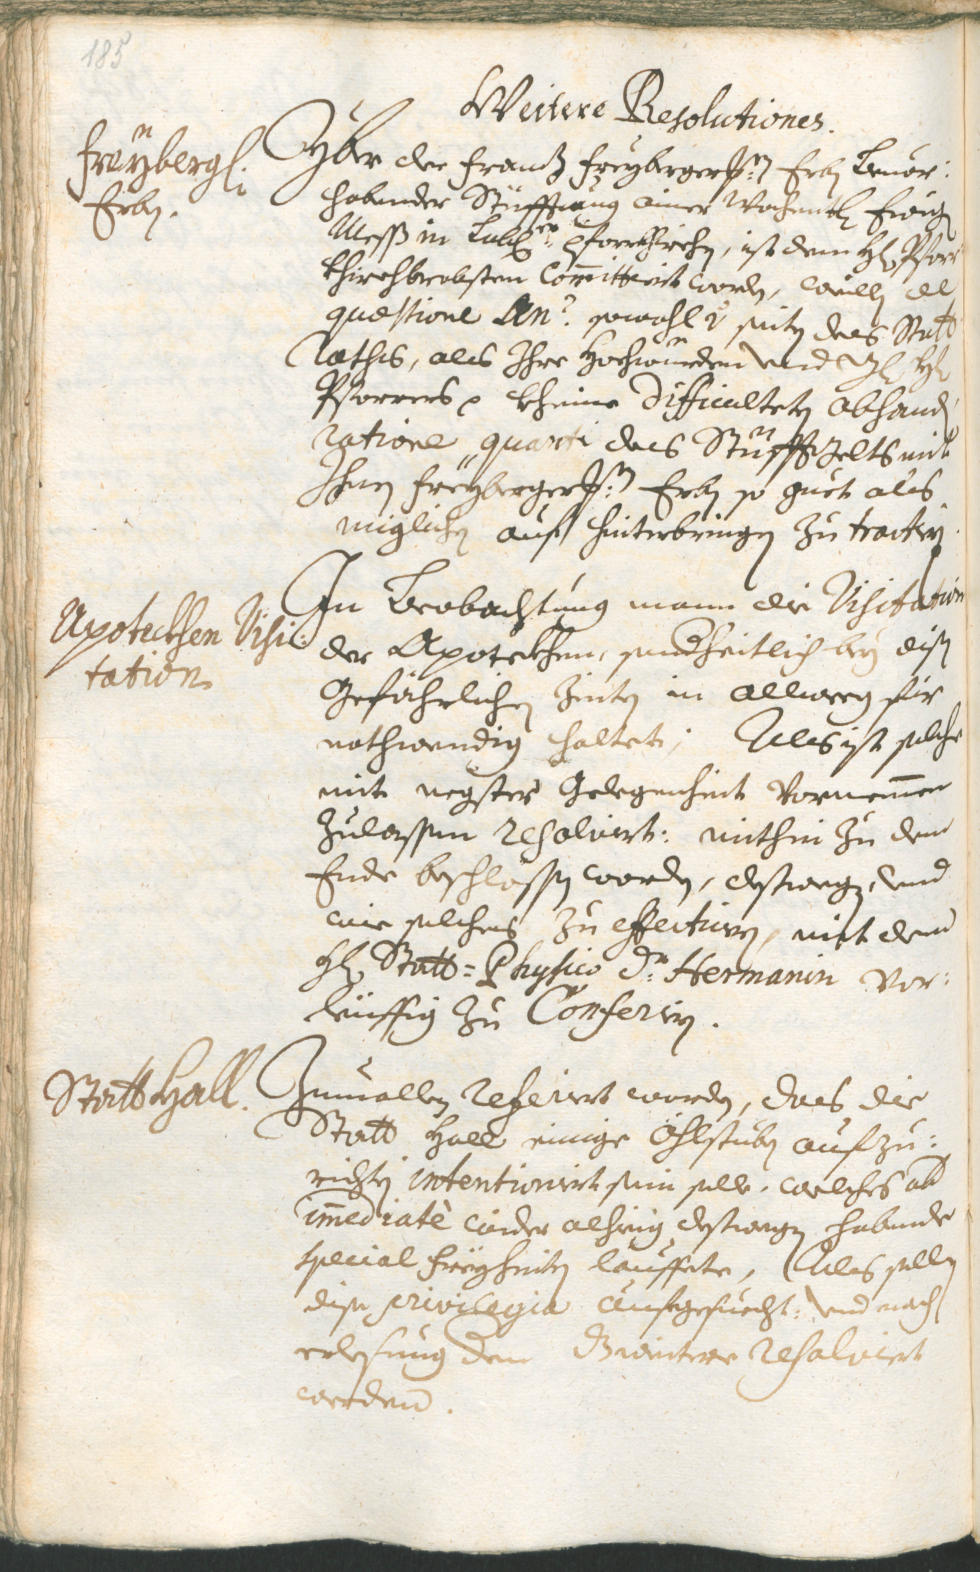 185
Weitere Resolutiones.
Freÿbergl:
Erben.
Yber der Frantz Freÿbergers: Erben bevor:
habender Stüfftung ainer Wochentl: Ewigen
Mess in Pfarrkhirchen, ist dem H: Pfarr
khirchbrobsten Committirt worden, weillen de
quæstione An? sowohl seiten des Statt
Raths, als Ihro Hochwürden und H:
Pfarrers kheine Difficulteten obhanden
ratione quanti des Stüfftgelts mit
Ihnen Freÿbergers: Erben so guet als
miglichen auf hinterbringen zu tractiern.
Apoteckhen Visi:
tation.
In Beobachtung mann die Visitation
der Apoteckhen, sonderheitlich beÿ disen
Gefährlichen Zeiten in allweeg für
nothwendig haltet; Als ist solche
mit negster Gelegenheit Vornemmen
zulassen resolvirt: mithin zu dem
Ende beschlossen worden, destwegen, und
wie solches zu effectuiern, mit dem
H: Statt-Physico Dr: Hermanin Vor:
leüffig zu Conferiern.
Statt Hall.
Zumallen referirt worden, das die
Statt Hall einige Öhlstuben aufzu:
richten intentionirt sein solle, welches aber
immediatè wider alhieig destwegen habende
special freÿheiten lauffete, Als sollen
dise privilegia aufgesuecht: und nach
erlesung dem Weitere resolvirt
werden.